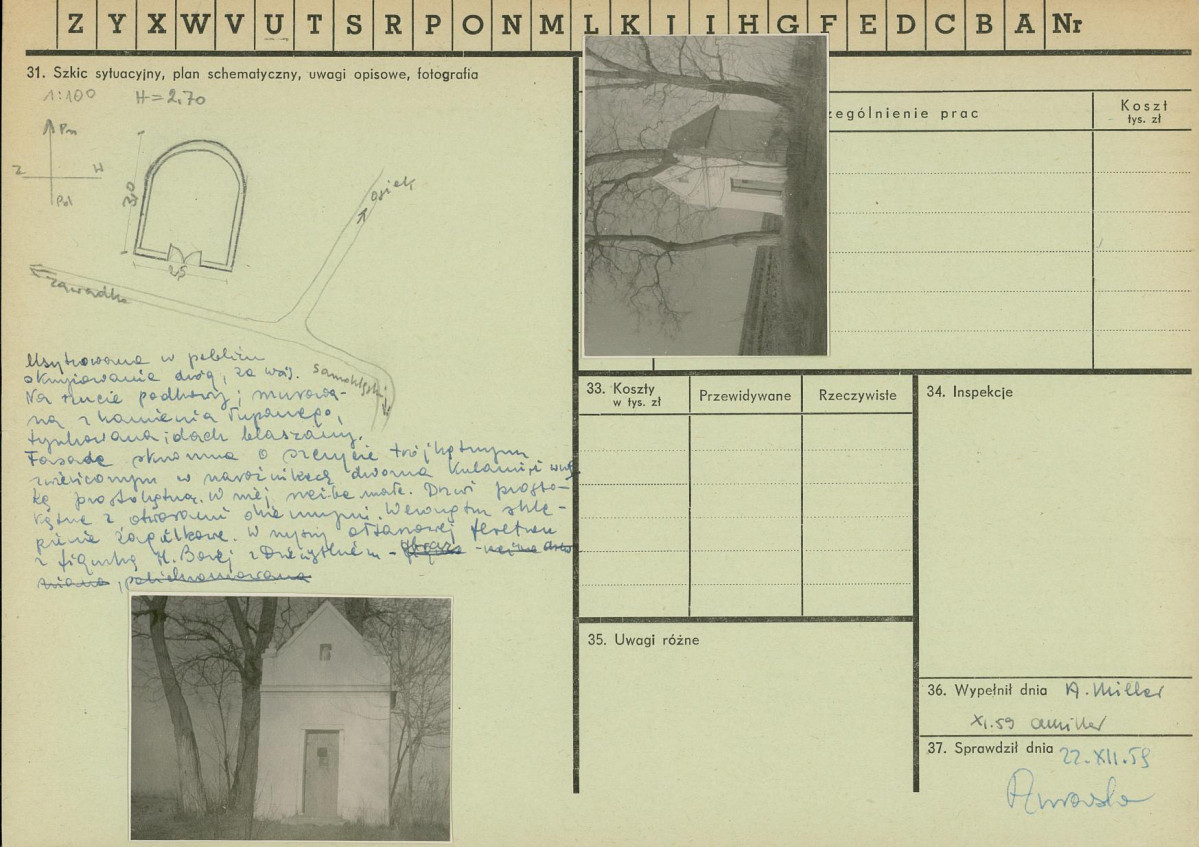 Z Y X W V U T S R P O N M L K J I H G F E D C B A Nr
31. Szkic sytuacyjny, plan schematyczny, uwagi opisowe, fotografia
1:100 H = 2,70
Pn
Z W
Poł
3,0
2,5
osiek
Zawadka
Samoklęski
Usytuowana w pobliżu
skrzyżowania dróg, za wsią.
Na rzucie podkowy; murowa-
na z kamienia łupanego,
tynkowana, dach blaszany.
Fasada skromna o szczycie trójkątnym
zwieńczonym w narożnikach dwoma kulami i
kę prostokątną. W niej małe. Drzwi prosto-
kątne z otworami okiennymi. Wewnątrz skle-
pienie żaglkowe. W niszy ołtarzowej feretron
z figurką M. Boskiej z Dzieciątkiem -
zególnienie prac
Koszt
tys. zł
33. Koszty
w tys. zł
Przewidywane
Rzeczywiste
34. Inspekcje
35. Uwagi różne
36. Wypełnił dnia A. Miller
XI.59 amiller
37. Sprawdził dnia 22.XII.59